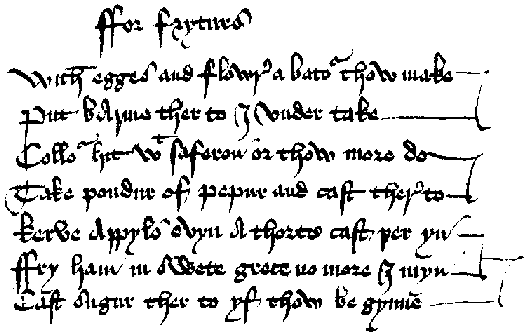 ffor frytures
With egges and flowre a bator thow make
Put barme ther to I vnder take
Collor hit wt saferon or thow more do
Take poudur of pepur and cast ther to
kerve appyls ovyr a thorte cast per yn
ffry ham in swete grece no more I myn
Cast sugur ther to yf thow be gynne